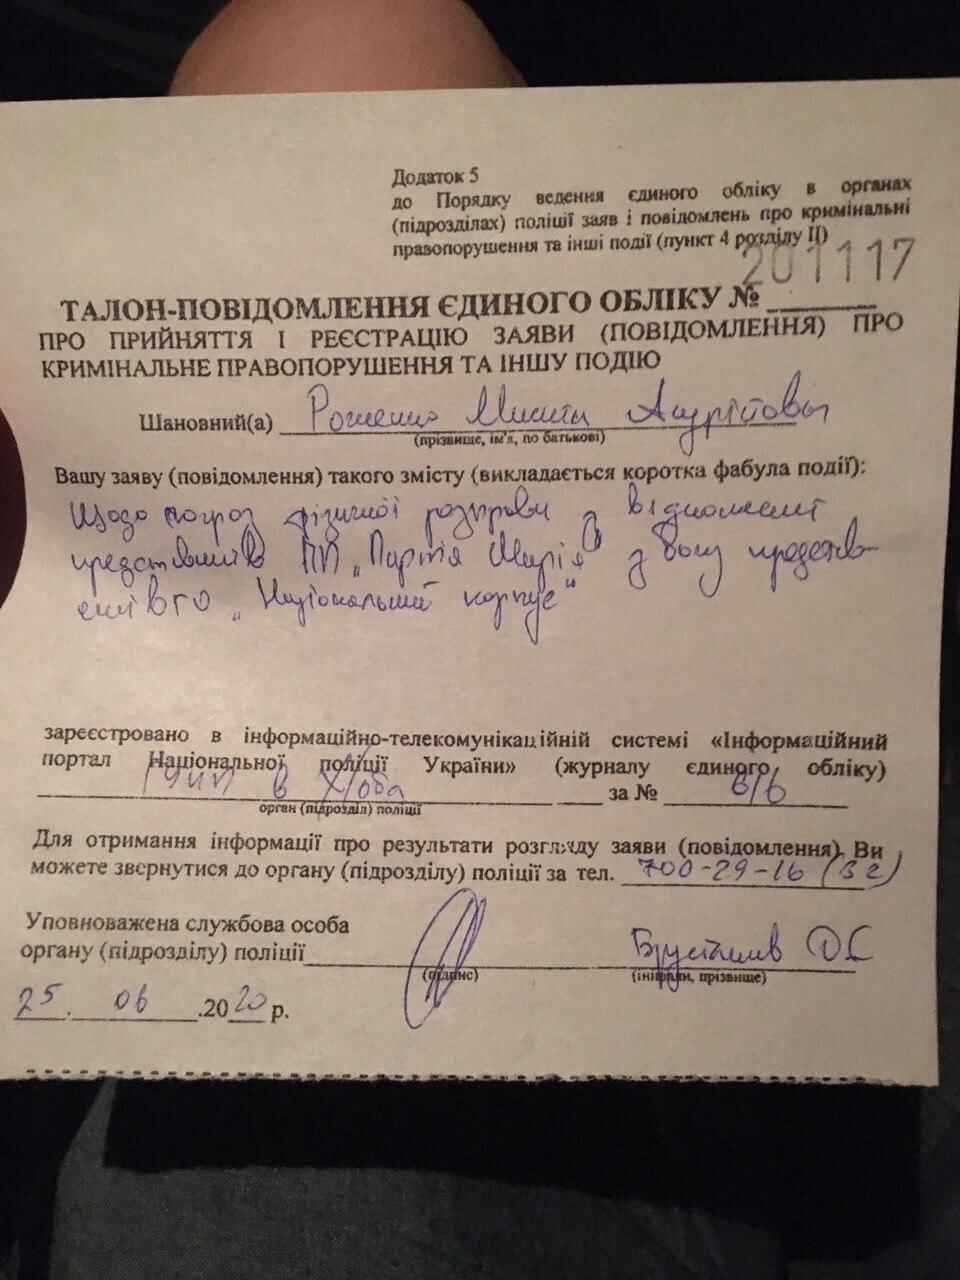 Додаток 5
до Порядку ведення єдиного обліку в органах
(підрозділах) поліції заяв і повідомлень про кримінальні
правопорушення та інші події (пункт 4 розділу ІІ)
201117
ТАЛОН-ПОВІДОМЛЕННЯ ЄДИНОГО ОБЛІКУ №
ПРО ПРИЙНЯТТЯ І РЕЄСТРАЦІЮ ЗАЯВИ (ПОВІДОМЛЕННЯ) ПРО
КРИМІНАЛЬНЕ ПРАВОПОРУШЕННЯ ТА ІНШУ ПОДІЮ
Шановний(а) Микита Андрійович
(прізвище, ім'я, по батькові)
Вашу заяву (повідомлення) такого змісту (викладається коротка фабула події):
Щодо погроз фізичної розправи у відношенні
представників ПП „Партія Шарія" з боку представ-
„Національний корпус"
зареєстровано в інформаційно-телекомунікаційній системі «Інформаційний
портал Національної поліції України» (журналу єдиного обліку)
в за № б/б
орган (підрозділ) поліції
Для отримання інформації про результати розгляду заяви (повідомлення) Ви
можете звернутися до органу (підрозділу) поліції за тел. 700-29-16
Уповноважена службова особа
органу (підрозділу) поліції
(підпис) (ініціали, прізвище)
25. 06 .2020 р.